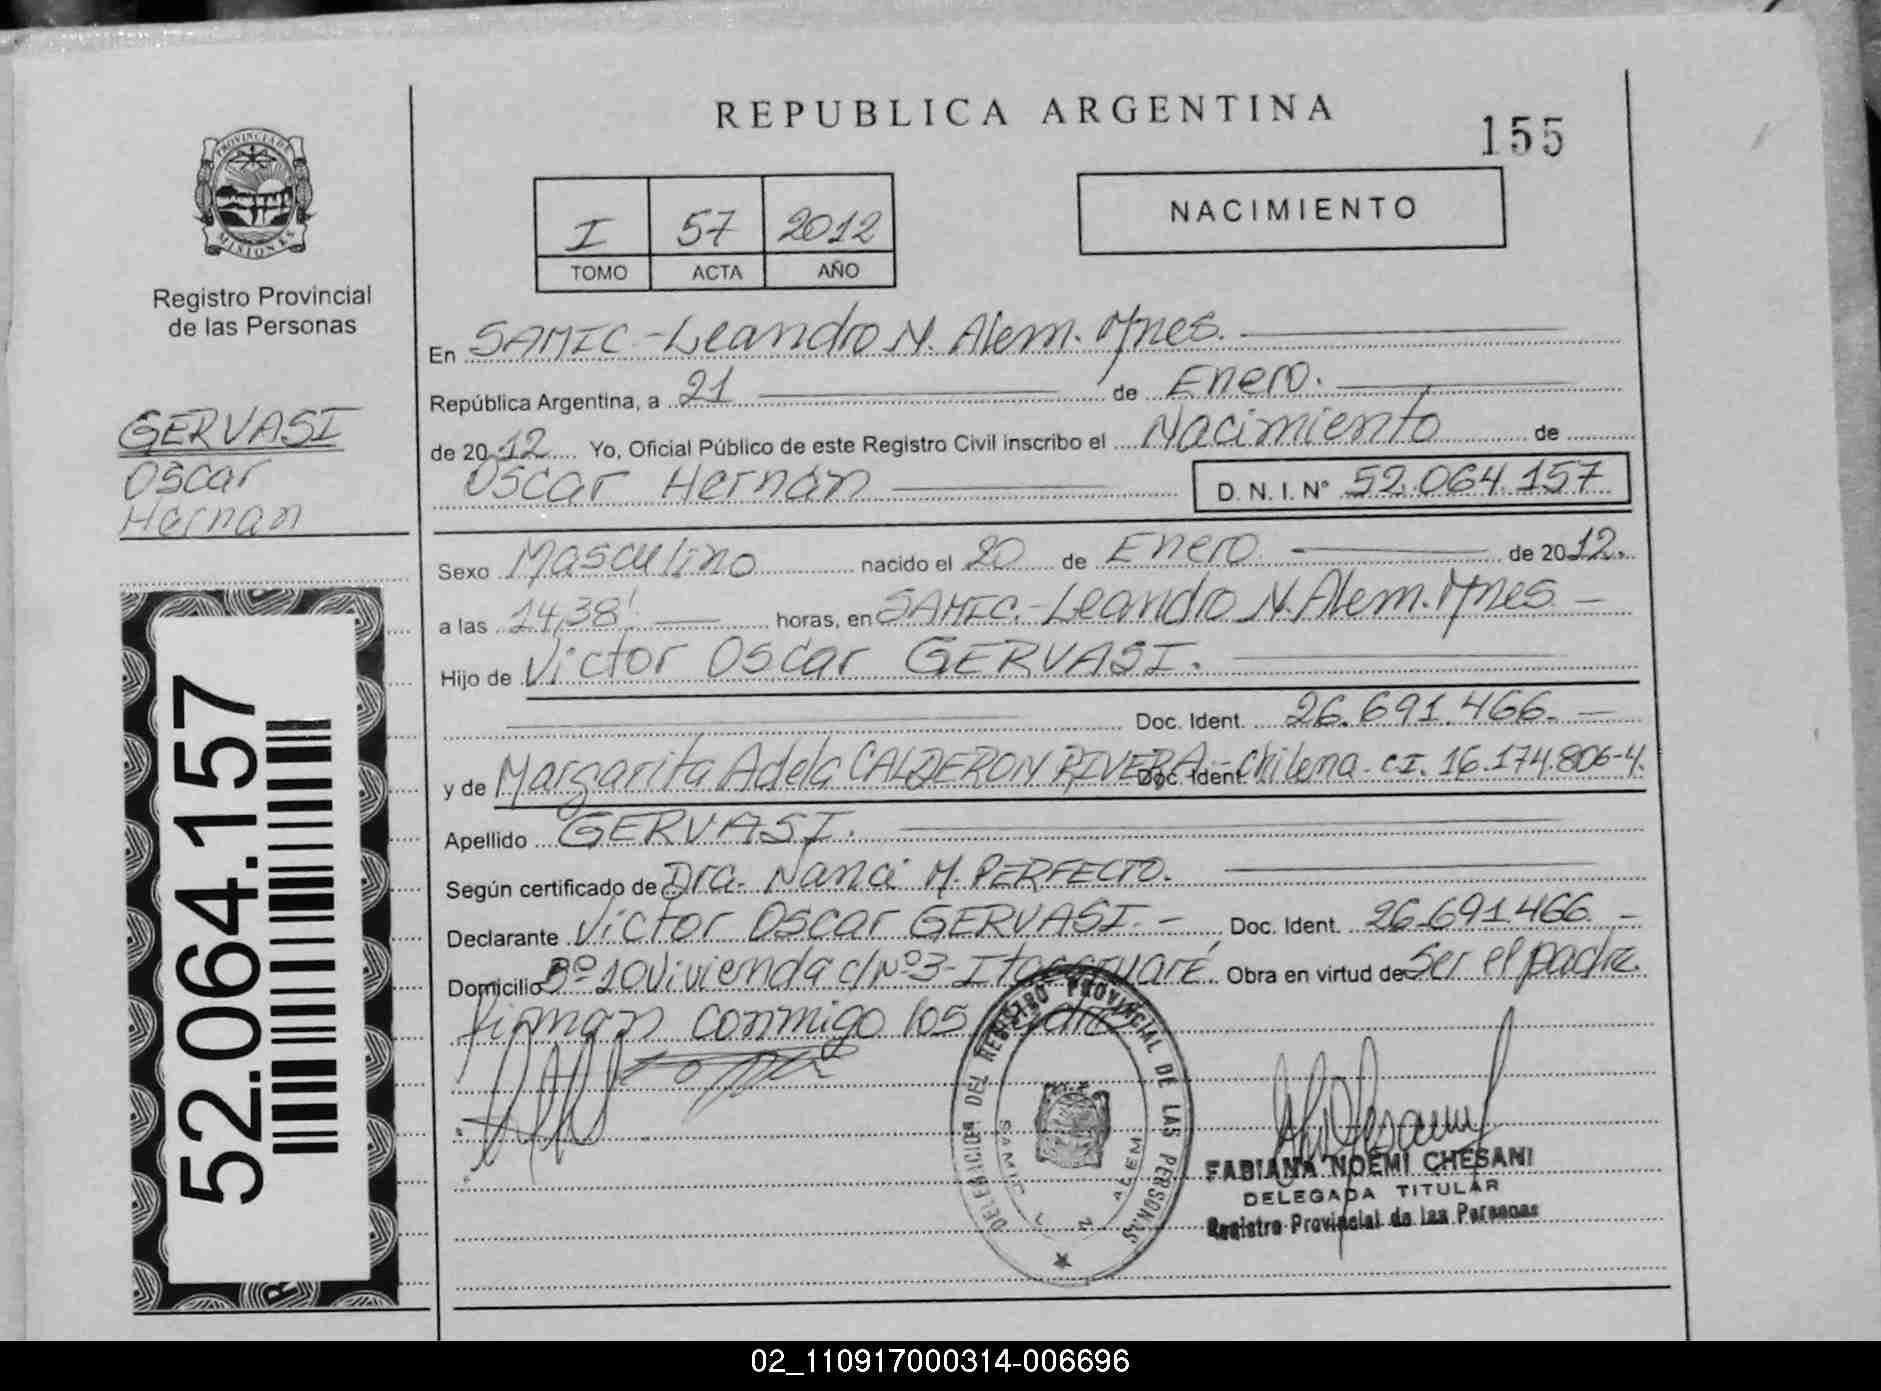 REPUBLICA ARGENTINA
155
PROVINCIA DE
MISIONES
Registro Provincial
de las Personas
I 57 2012
TOMO ACTA AÑO
NACIMIENTO
GERVASI
Oscar
Hernan
52.064.157
En SAMIC - Leandro N. Alem. Mnes.
República Argentina, a 21 de Enero.
de 2012 Yo, Oficial Público de este Registro Civil inscribo el Nacimiento de
Oscar Hernán D. N. I. N° 52.064.157
Sexo Masculino nacido el 20 de Enero. de 2012.
a las 14,38' horas, en SAMIC. - Leandro N. Alem. Mnes -
Hijo de Victor Oscar GERVASI.
Doc. Ident. 26.691.466. -
y de Margarita Adela CALDERON RIVERA - Doc. Ident. Chilena. C.I. 16.174.806-4.
Apellido GERVASI.
Según certificado de Dra. Nanci M. PERFECTO.
Declarante Victor Oscar GERVASI. - Doc. Ident. 26.691.466. -
Domicilio Bº 10 Vivienda c/Nº3 - Itacaruaré. Obra en virtud de Ser el padre.
Firman conmigo los
DELEGACION DEL REGISTRO PROVINCIAL DE LAS PERSONAS
SAMIC L N ALEM
FABIANA NOEMI CHESANI
DELEGADA TITULAR
Registro Provincial de las Personas
02_110917000314-006696